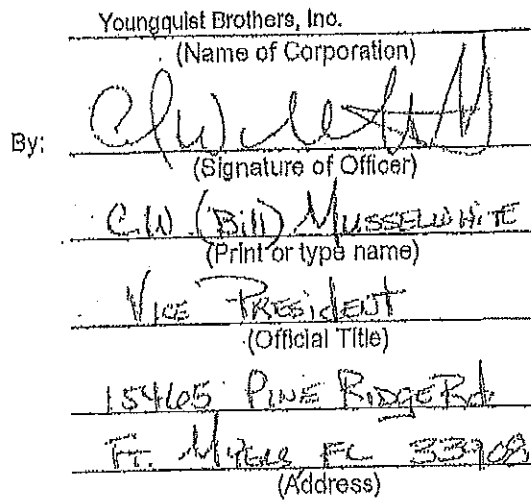 Youngquist Brothers, Inc.
(Name of Corporation)
By:
(Signature of Officer)
C.W. (Bill) MUSSELWHITE
(Print or type name)
VICE PRESIDENT
(Official Title)
15465 PINE RIDGE Rd
FT. MYERS FL 33908
(Address)